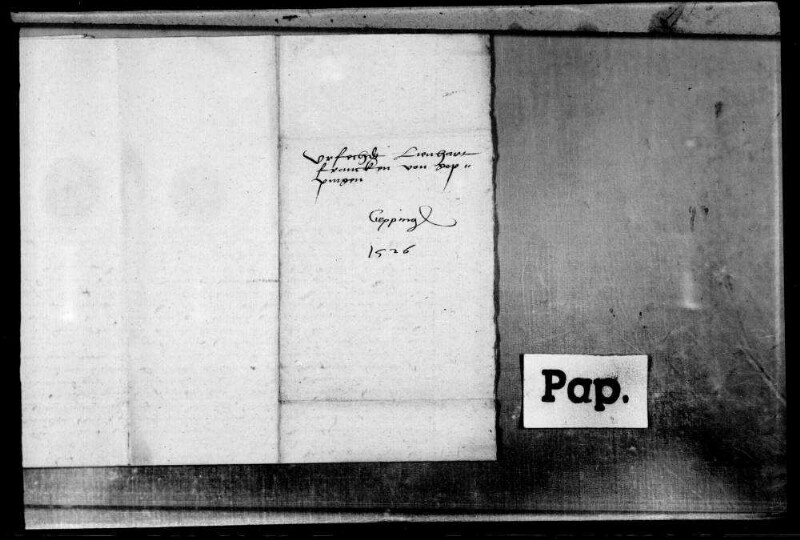 Vrfechd Lienhart
francken von gep=
pingen
Gepping
1526
Pap.